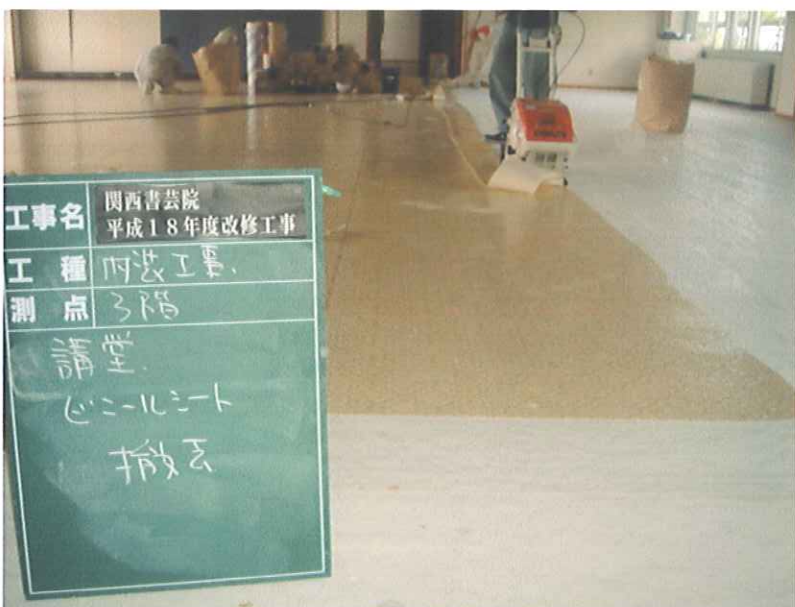 工事名 関西書芸院
平成18年度改修工事
工種 内装工事.
測点 3階
講堂.
ビニールシート
撤去